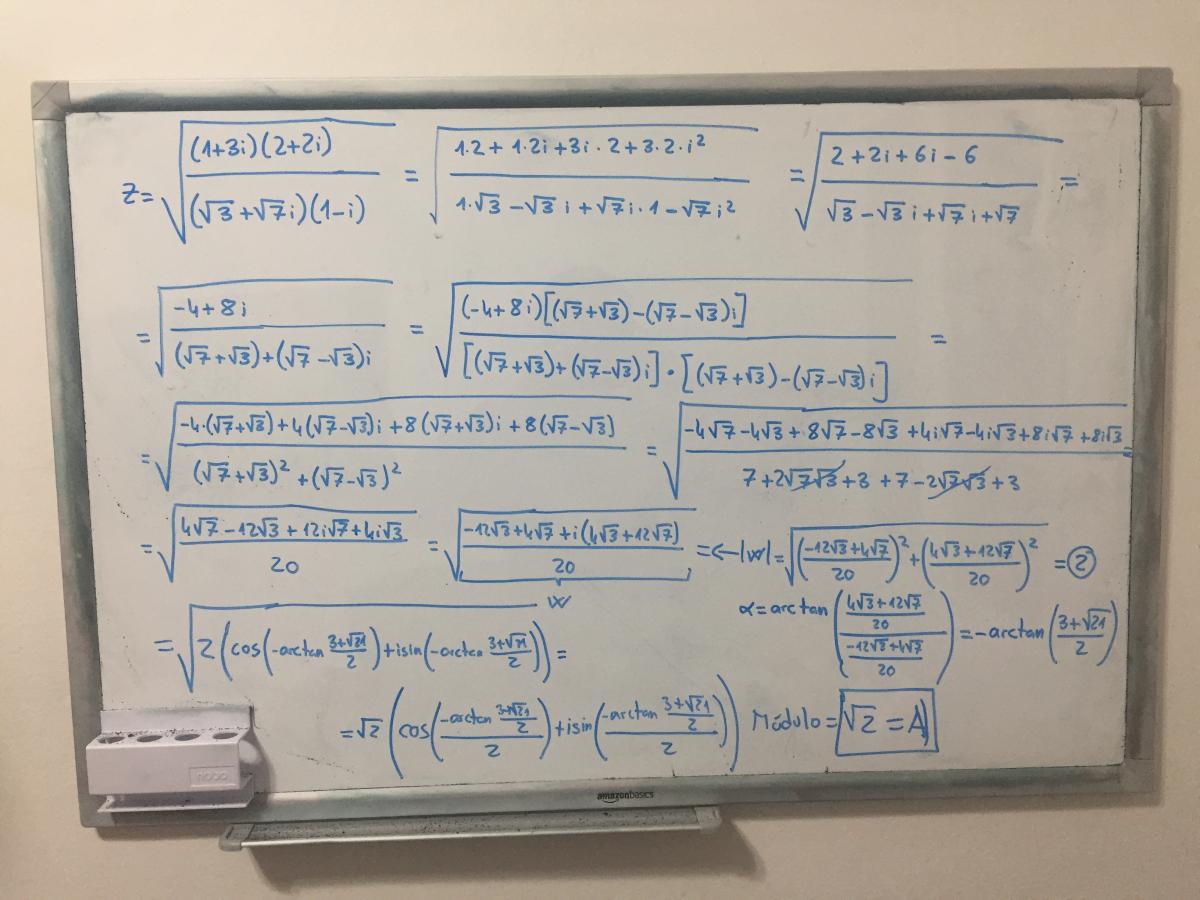 z = √((1+3i)(2+2i) / (√3+√7i)(1-i)) = √((1·2+1·2i+3i·2+3·2·i²) / (1·√3-√3i+√7i·1-√7i²)) = √((2+2i+6i-6) / (√3-√3i+√7i+√7)) =
= √((-4+8i) / ((√7+√3)+(√7-√3)i)) = √((-4+8i)[(√7+√3)-(√7-√3)i] / [(√7+√3)+(√7-√3)i]·[(√7+√3)-(√7-√3)i]) =
= √((-4·(√7+√3)+4(√7-√3)i+8(√7+√3)i+8(√7-√3)) / ((√7+√3)²+(√7-√3)²)) = √((-4√7-4√3+8√7-8√3+4i√7-4i√3+8i√7+8i√3) / (7+2√7√3+3+7-2√7√3+3)) =
= √((4√7-12√3+12i√7+4i√3) / 20) = √((-12√3+4√7+i(4√3+12√7)) / 20) = <-|w| = √(((-12√3+4√7)/20)²+((4√3+12√7)/20)²) = 2
w
α = arctan(((4√3+12√7)/20) / ((-12√3+4√7)/20)) = -arctan((3+√21)/2)
= √(2(cos(-arctan (3+√21)/2)+isin(-arctan (3+√21)/2))) =
= √2(cos((-arctan (3+√21)/2)/2)+isin((-arctan (3+√21)/2)/2)) Módulo = √2 = A)
nobo
amazonbasics